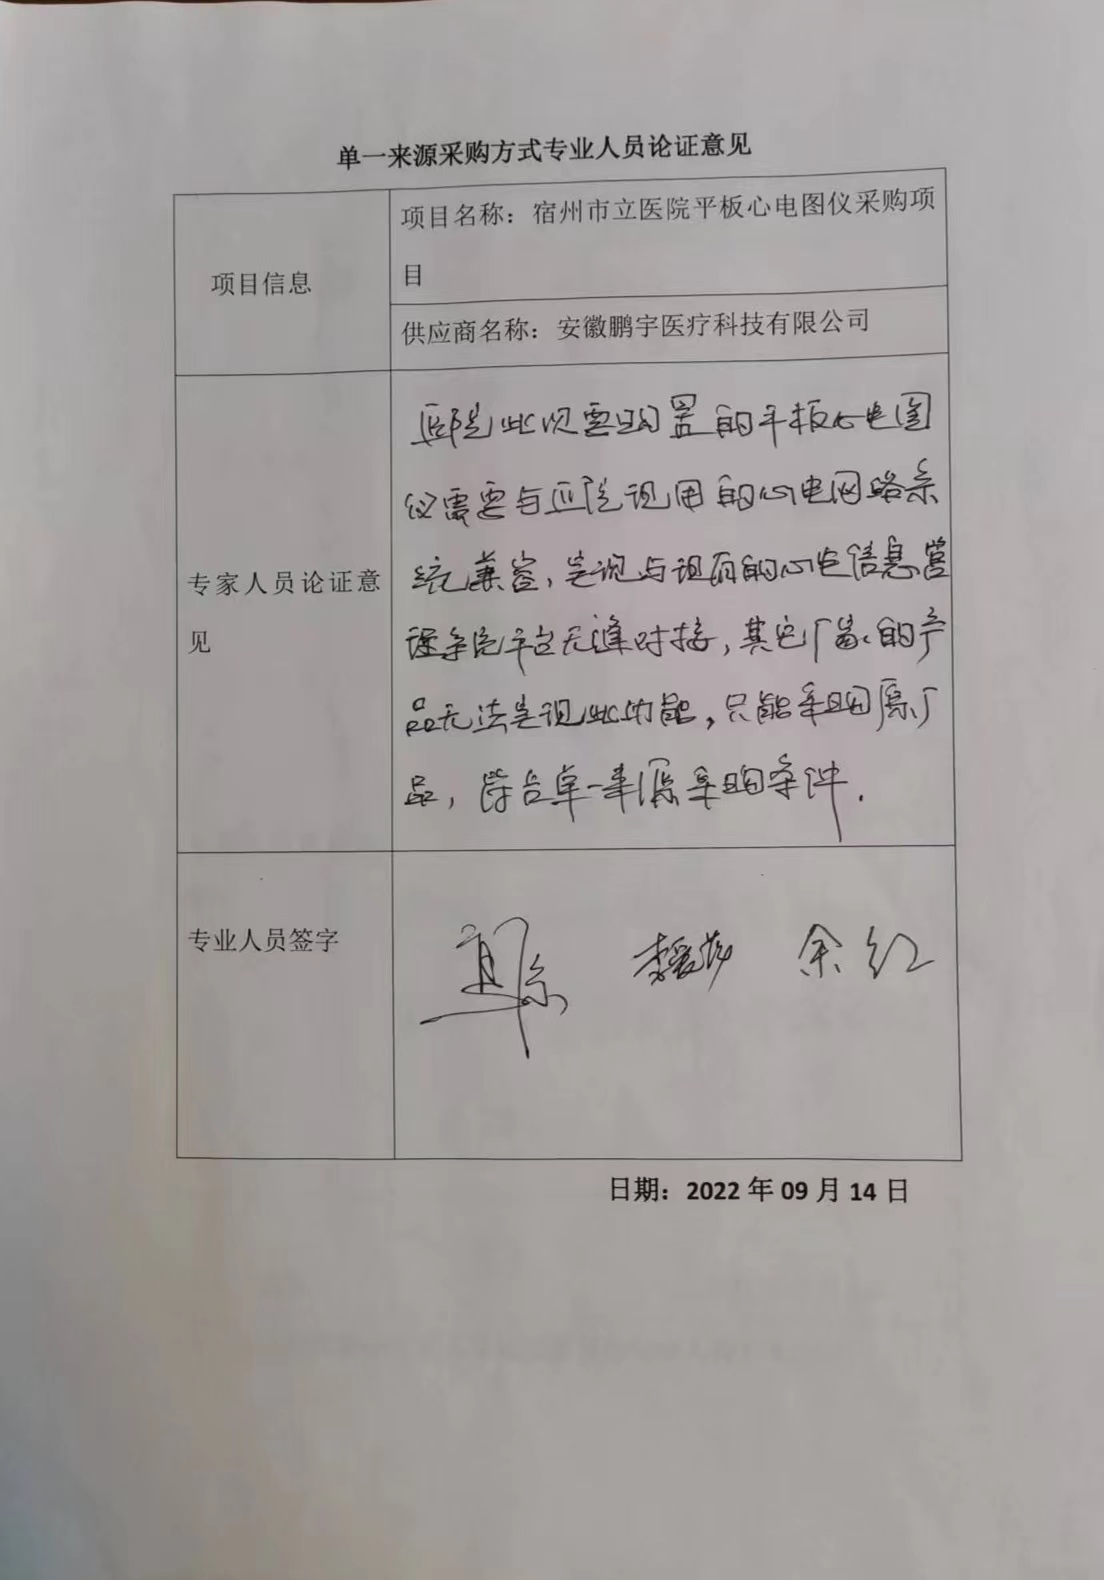 单一来源采购方式专业人员论证意见
项目信息
项目名称：宿州市立医院平板心电图仪采购项
目
供应商名称：安徽鹏宇医疗科技有限公司
专家人员论证意
见
医院此次需购置的平板心电图
仪需要与医院现用的心电网络系
统兼容，实现与现有的心电信息管
理系统平台无缝对接，其它厂家的产
品无法实现此功能，只能采购原厂
品，符合单一来源采购条件.
专业人员签字
余红
日期：2022年09月14日